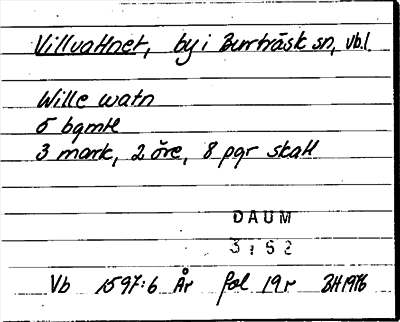 Villvattnet, by i Burträsk sn, vb.l.
Wille watn
5 bgmtl
3 mark, 2 öre, 8 pgr skatt
DAUM
3762
Vb 1597:6 År fol 19r BH 1976